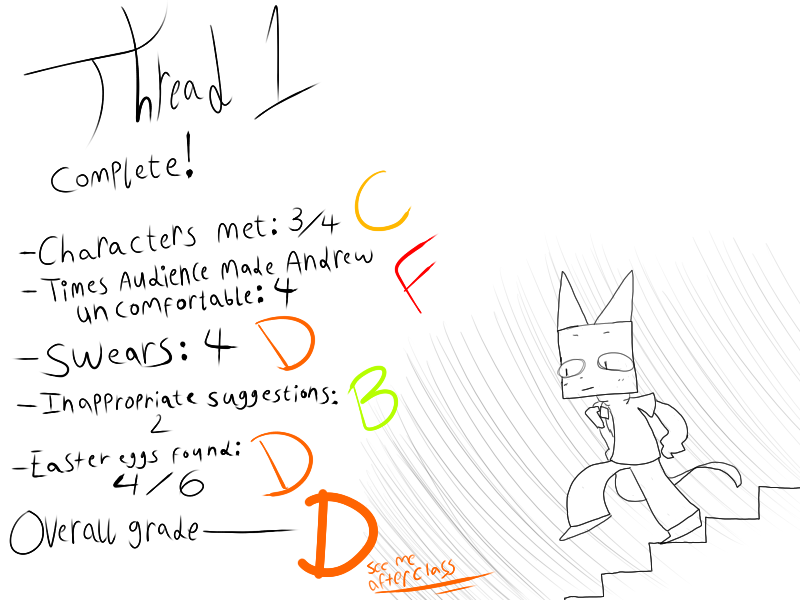 Thread 1
Complete!
-Characters met: 3/4 C
-Times Audience Made Andrew
uncomfortable: 4 F
-Swears: 4 D
-Inappropriate suggestions:
2 B
-Easter eggs found:
4/6 D
Overall grade— D
see me
after class